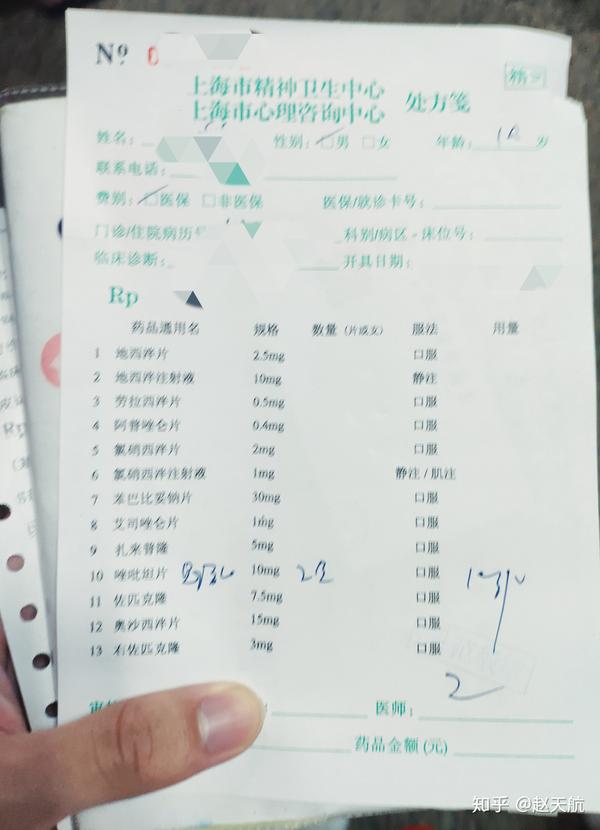 № 0
精
上海市精神卫生中心
上海市心理咨询中心 处方笺
姓名: 性别: □男 □女 年龄: 岁
联系电话:
费别: □医保 □非医保 医保/就诊卡号:
门诊/住院病历 科别/病区-床位号:
临床诊断: 开具日期:
Rp
药品通用名 规格 数量(片或支) 服法 用量
1 地西泮片 2.5mg 口服
2 地西泮注射液 10mg 静注
3 劳拉西泮片 0.5mg 口服
4 阿普唑仑片 0.4mg 口服
5 氯硝西泮片 2mg 口服
6 氯硝西泮注射液 1mg 静注/肌注
7 苯巴比妥钠片 30mg 口服
8 艾司唑仑片 1mg 口服
9 扎来普隆 5mg 口服
10 唑吡坦片 10mg 口服
11 佐匹克隆 7.5mg 口服
12 奥沙西泮片 15mg 口服
13 右佐匹克隆 3mg 口服
2
医师:
药品金额(元)
知乎 @赵天航